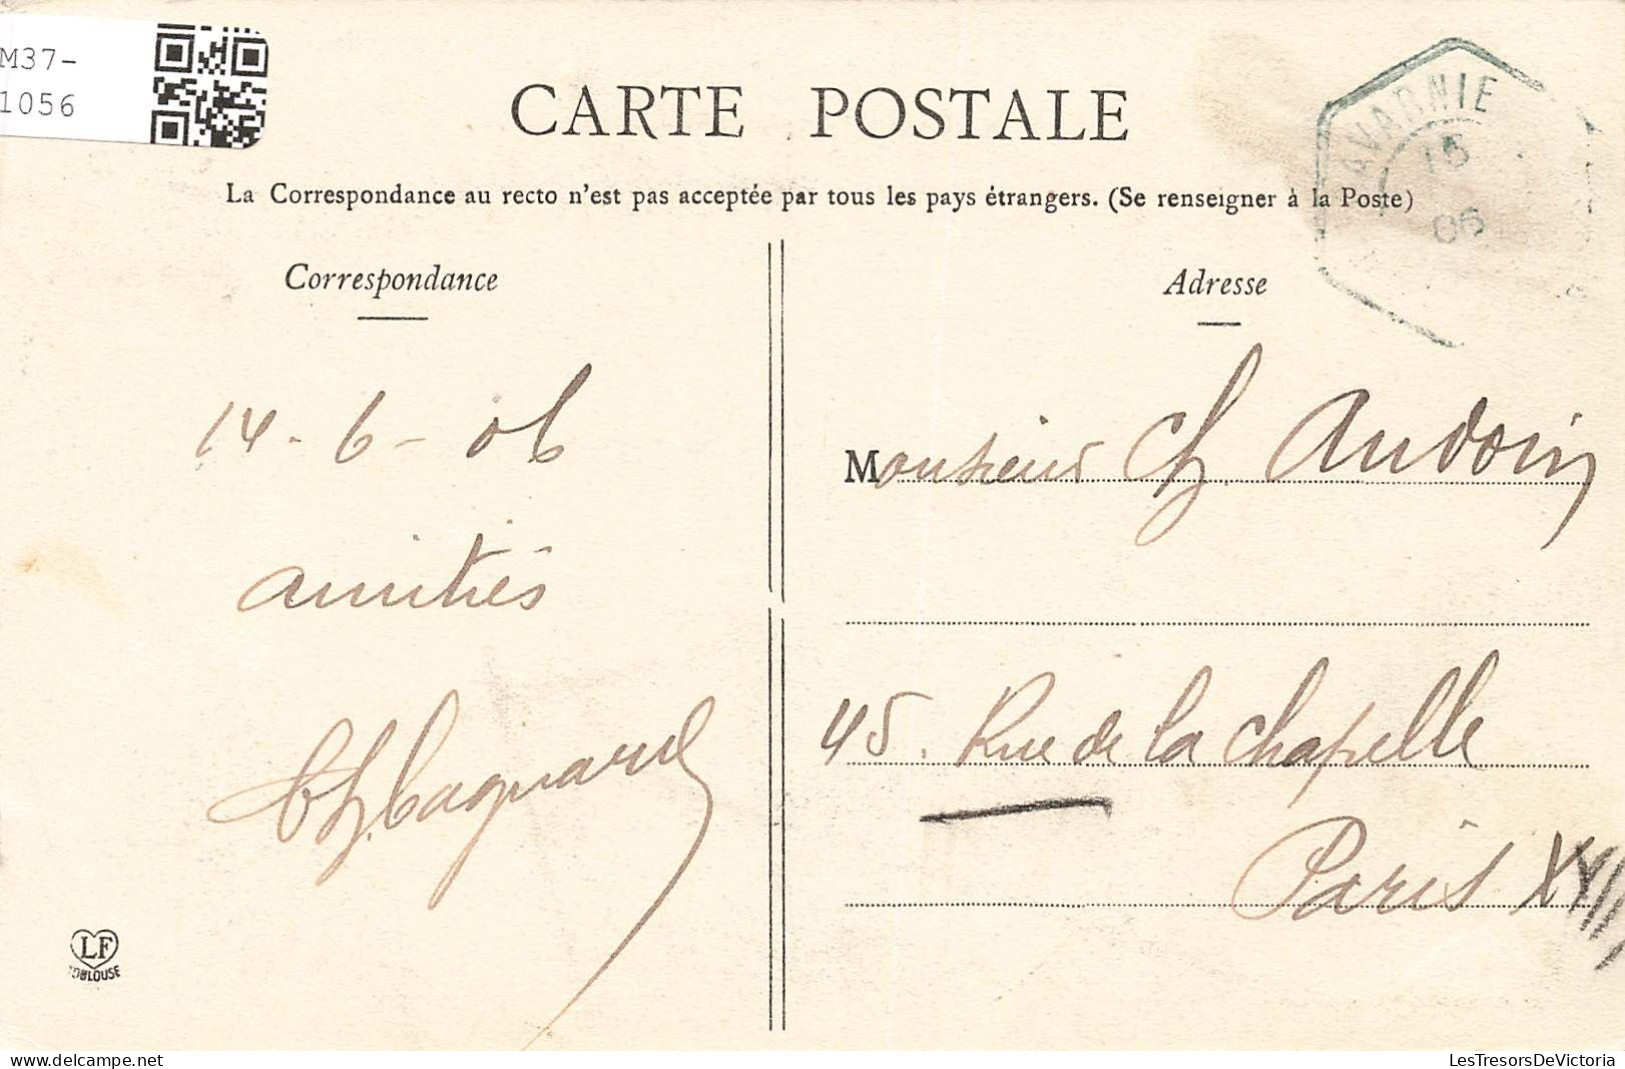 M37-
1056
CARTE POSTALE
La Correspondance au recto n'est pas acceptée par tous les pays étrangers. (Se renseigner à la Poste)
AVARNIE
15
06
Correspondance
14-6-06
amitiés
Adresse
Monsieur Ch Audoin
45. Rue de la Chapelle
Paris XVIII
LF
TOULOUSE
LesTresorsDeVictoria